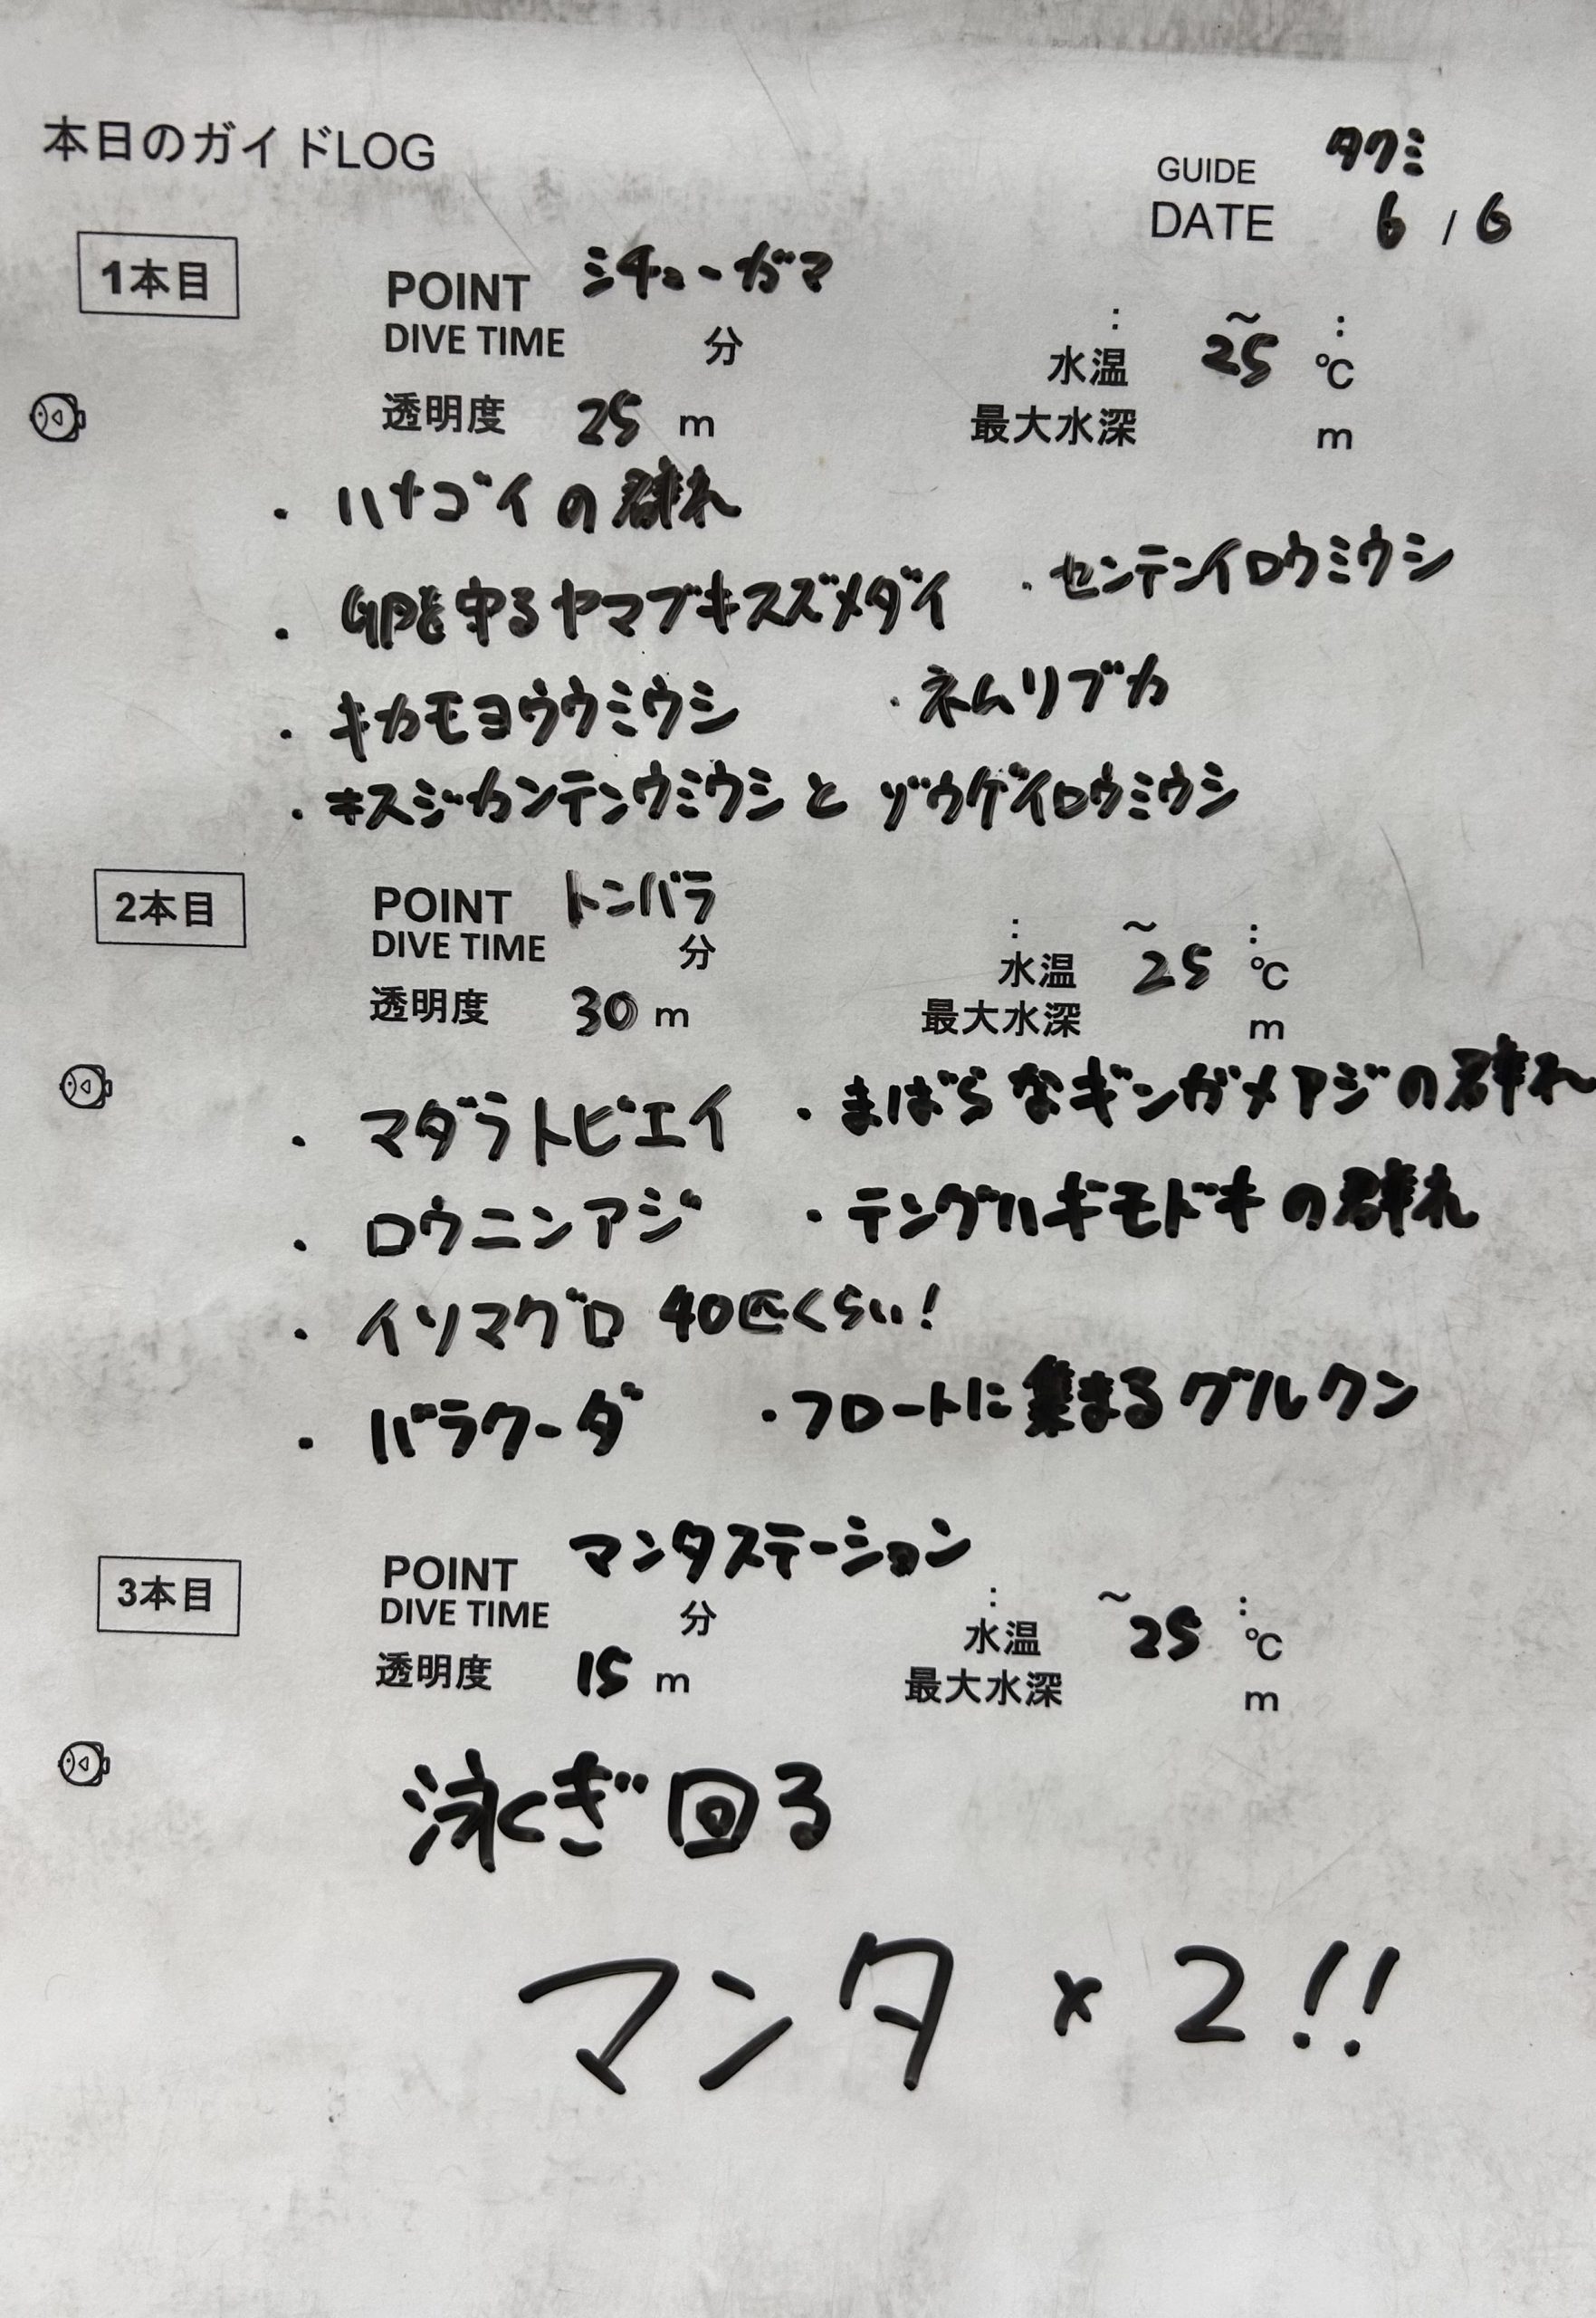 本日のガイドLOG
GUIDE タクミ
DATE 6 / 6
1本目
POINT シチューガマ
DIVE TIME 分 : ～ :
水温 25 ℃
透明度 25 m 最大水深 m
・ハナゴイの群れ
・卵を守るヤマブキスズメダイ ・センテンイロウミウシ
・キカモヨウウミウシ ・ネムリブカ
・キスジカンテンウミウシと ゾウゲイロウミウシ
2本目
POINT トンバラ
DIVE TIME 分 : ～ :
水温 25 ℃
透明度 30 m 最大水深 m
・マダラトビエイ ・まばらなギンガメアジの群れ
・ロウニンアジ ・テングハギモドキの群れ
・イソマグロ 40匹くらい!
・バラクーダ ・フロートに集まるグルクン
3本目
POINT マンタステーション
DIVE TIME 分 : ～ :
水温 25 ℃
透明度 15 m 最大水深 m
泳ぎ回る
マンタ × 2!!